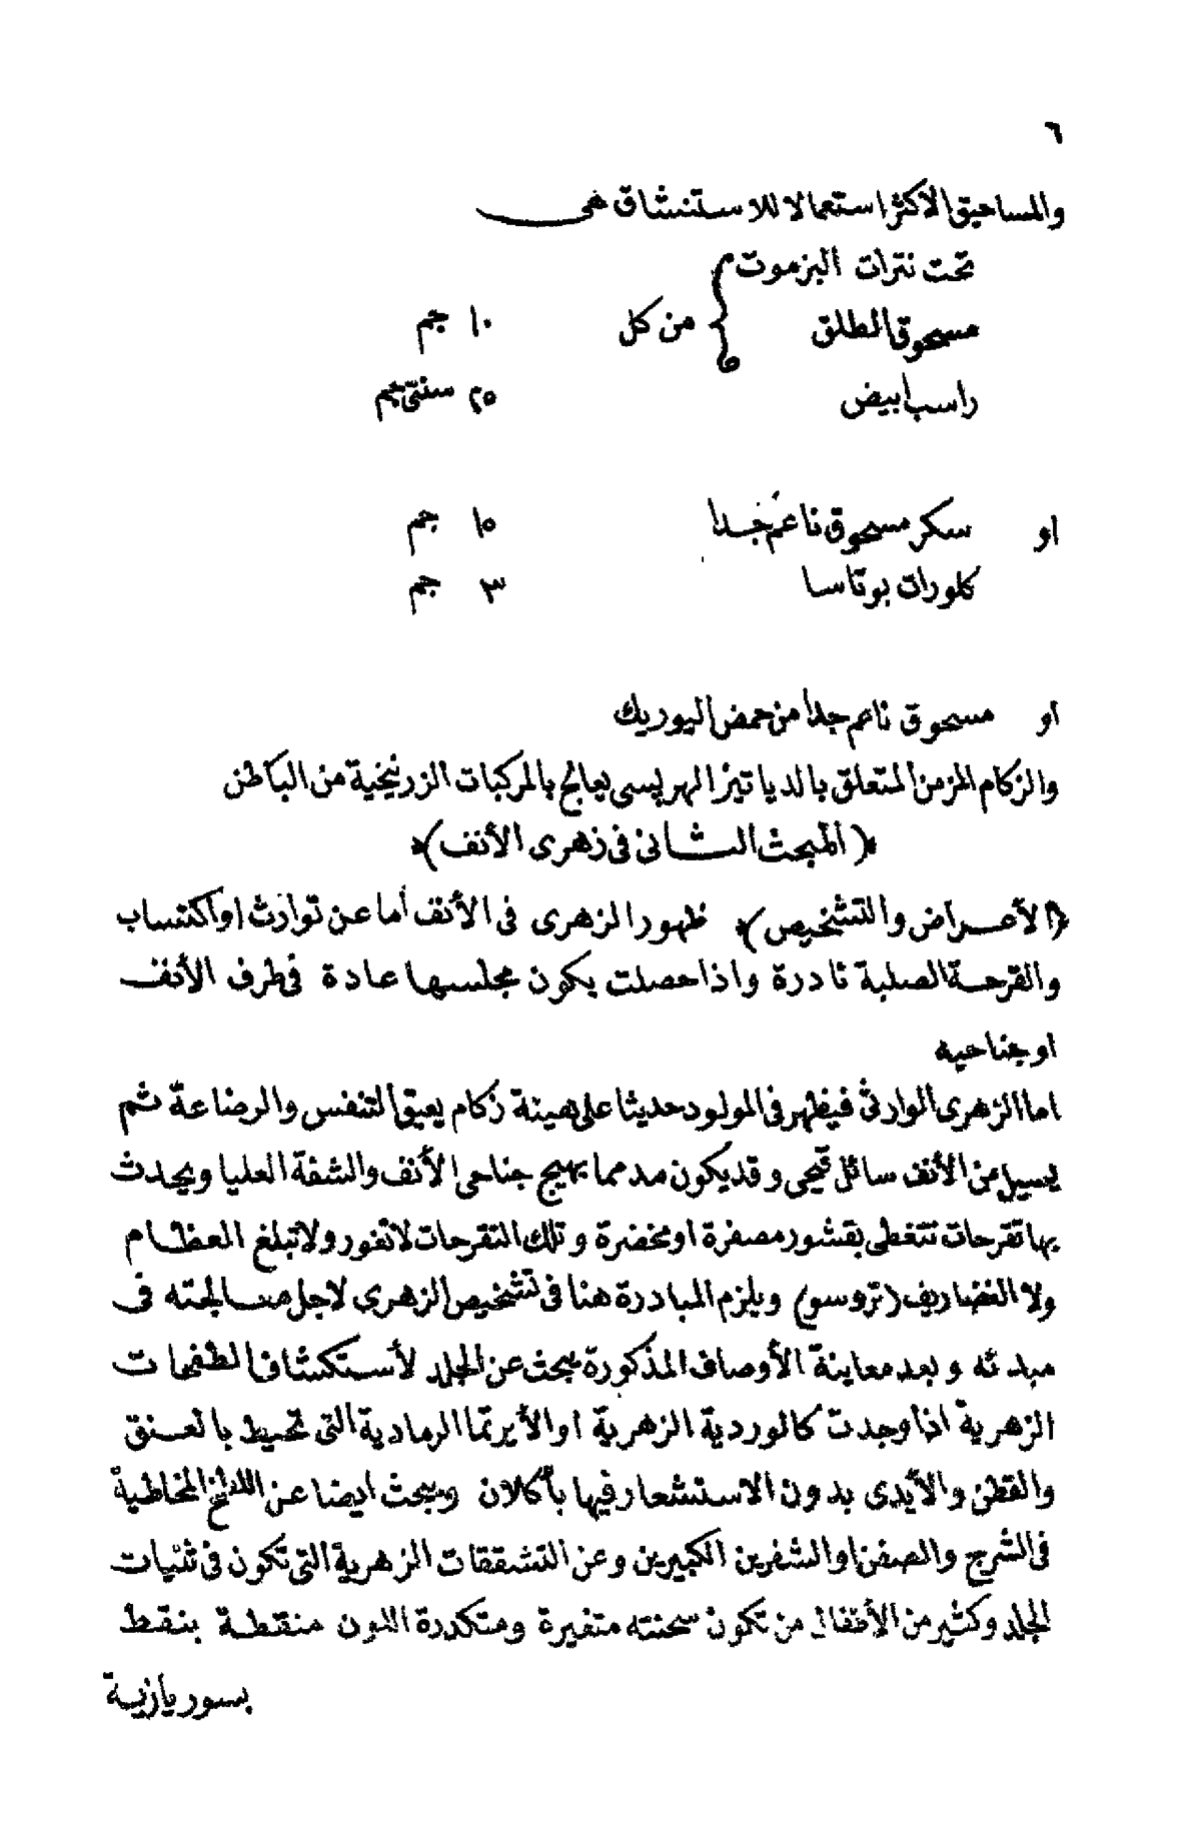 ٦
والمساحيق الاكثر استعمالا للاستنشاق هى
تحت نترات البزموت
مسحوق الطلق } من كل ١٠ جم
راسب ابيض ٢٥ سنتى جم
او سكر مسحوق ناعم جدا ١٥ جم
كلورات بوتاسا ٣ جم
او مسحوق ناعم جدا من حمض اليوريك
والزكام المزمن المتعلق بالدياتيز الهربسى يعالج بالمركبات الزرنيخية من الباطن
﴿ المبحث الثانى فى زهرى الأنف ﴾
﴿ الأعراض والتشخيص ﴾ ظهور الزهرى فى الأنف أما عن توارث او اكتساب
والقرحة الصلبة نادرة واذا حصلت يكون مجلسها عادة فى طرف الأنف
او جناحيه
اما الزهرى الوارثى فيظهر فى المولود حديثا على هيئة زكام يعيق التنفس والرضاعة ثم
يسيل من الأنف سائل قيحى وقد يكون مدمما يهيج جناحى الأنف والشفة العليا ويحدث
بها تقرحات تتغطى بقشور مصفرة او مخضرة وتلك التقرحات لا تغور ولا تبلغ العظام
ولا الغضاريف (تروسو) ويلزم المبادرة هنا فى تشخيص الزهرى لاجل معالجته فى
مبدئه وبعد معاينة الأوصاف المذكورة يبحث عن الجلد لأستكشاف الطفحات
الزهرية اذا وجدت كالوردية الزهرية او الأيرتما الرمادية التى تحيط بالعنق
والقطن والأيدى بدون الاستشعار فيها بأكلان ويبحث ايضا عن اللطخ المخاطية
فى الشرج والصفن او الشفرين الكبيرين وعن التشققات الزهرية التى تكون فى ثنيات
الجلد وكثير من الأطفال من تكون سحنته متغيرة ومتكدرة اللون منقطة بنقط
بسوريازية